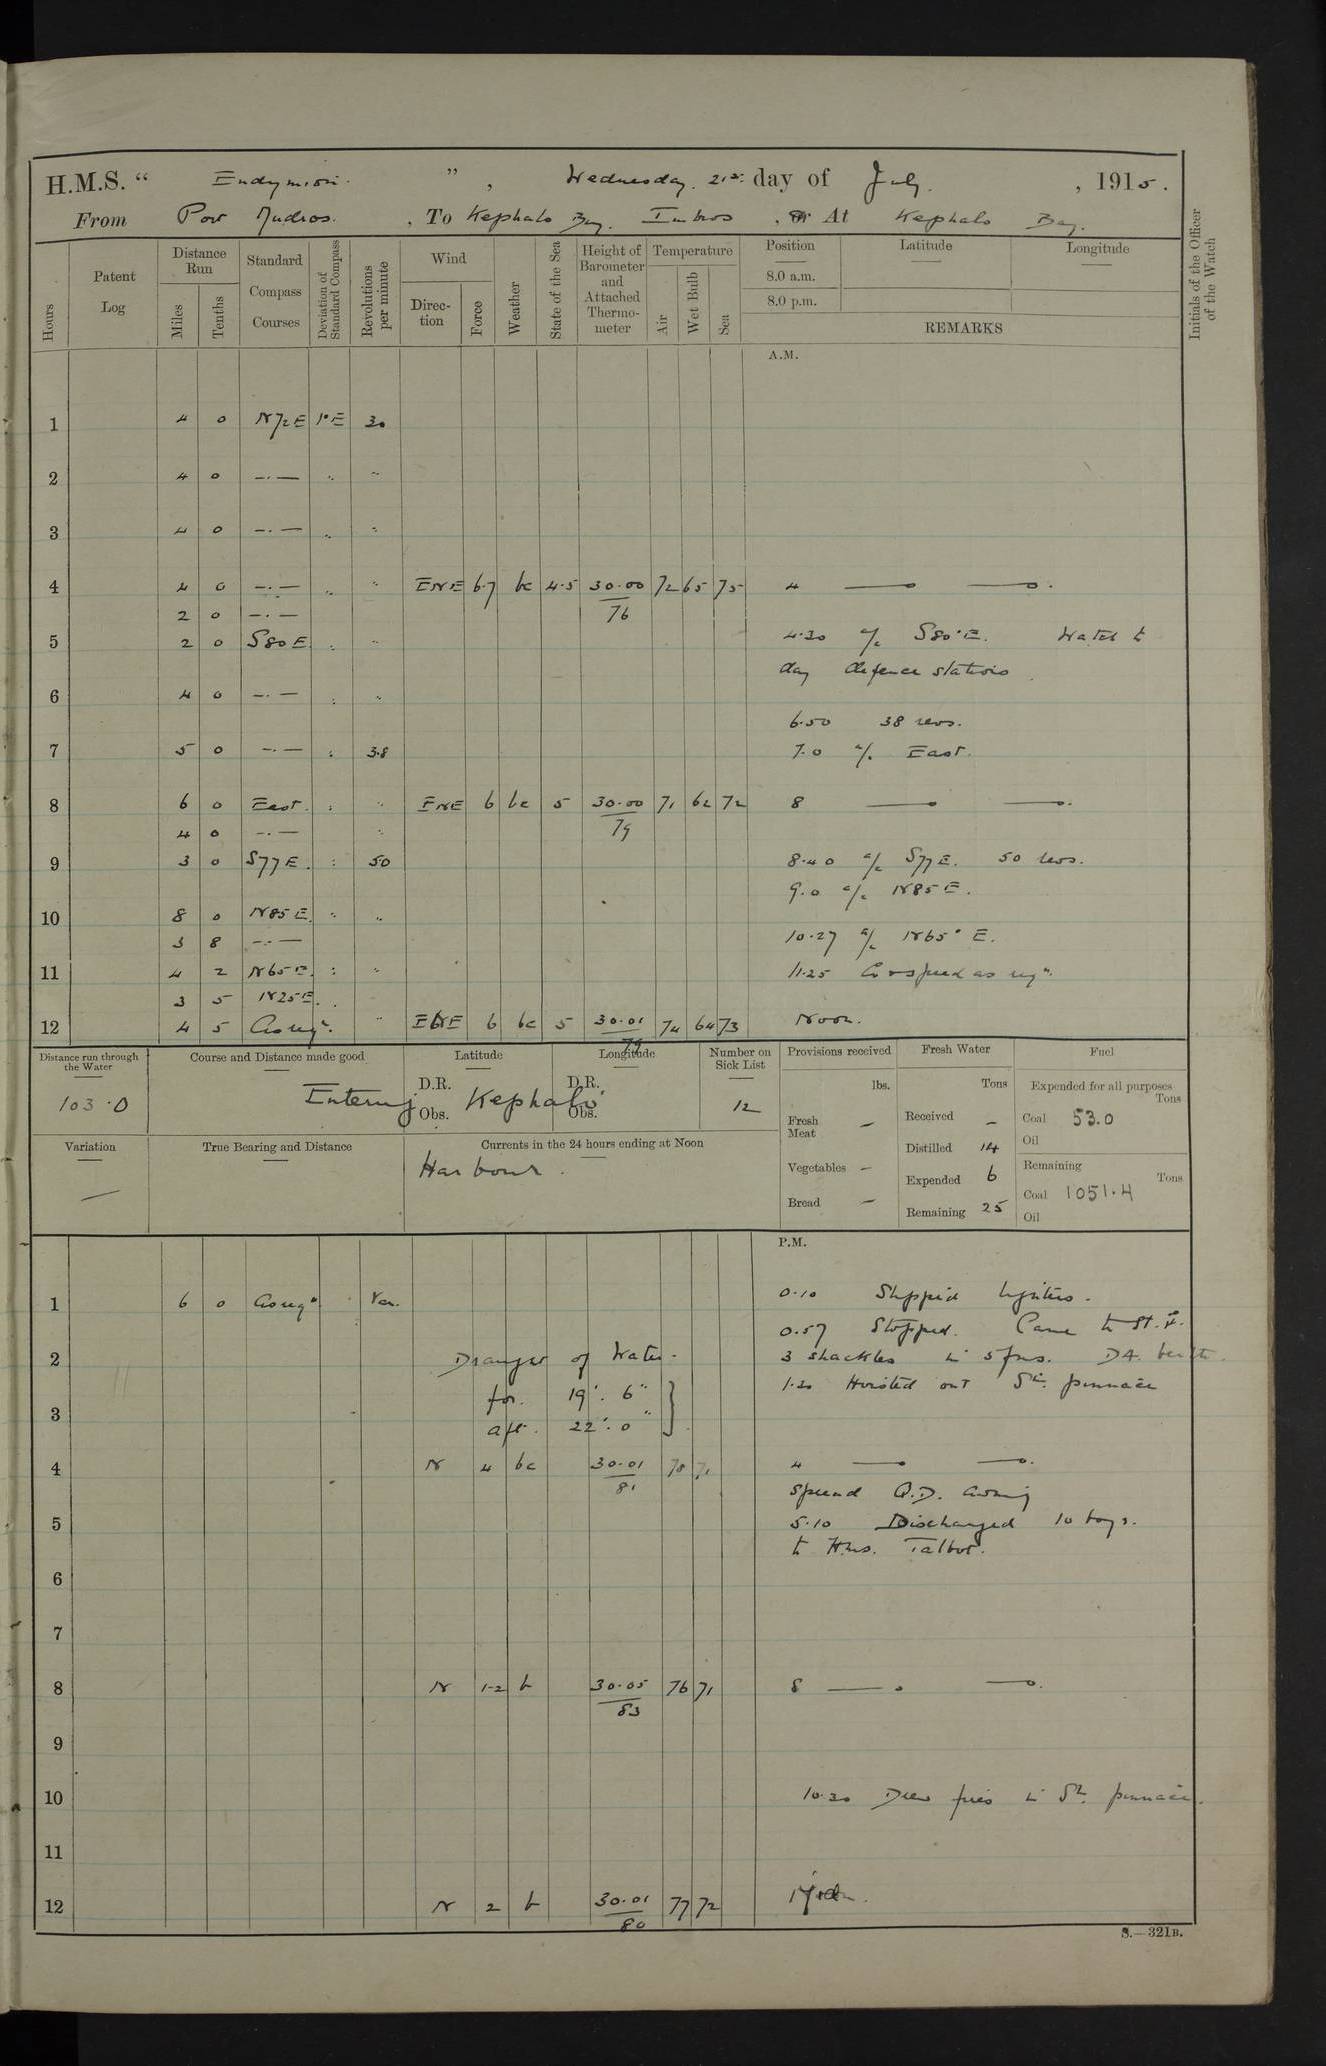 H.M.S. " Endymion. " , Wednesday. 21st: day of July. , 1915.
From Port Mudros. , To Kephalo Bay. Imbros , or At Kephalo Bay.
Hours
Patent Log
Distance Run
Miles
Tenths
Standard Compass Courses
Deviation of Standard Compass
Revolutions per minute
Wind
Direction
Force
Weather
State of the Sea
Height of Barometer and Attached Thermometer
Temperature
Air
Wet Bulb
Sea
Position
8.0 a.m.
8.0 p.m.
Latitude
Longitude
REMARKS
Initials of the Officer of the Watch
A.M.
1 4 0 N72E 1°E 30
2 4 0 —·— " "
3 4 0 —·— " "
4 4 0 —·— " " ENE 6.7 bc 4.5 30.00 72 65 75 4 ——o ——o.
2 0 —·— 76
5 2 0 S80E " " 4.30 a/c S80°E. Watch to
day defence stations
6 4 0 —·— " "
6.50 38 revs.
7 5 0 —·— " 38 7.0 a/c East.
8 6 0 East. " " ENE 6 bc 5 30.00 71 62 72 8 ——o ——o.
4 0 —·— " 79
9 3 0 S77E. " 50 8.40 a/c S77E. 50 revs.
9.0 a/c N85E.
10 8 0 N85E. " "
3 8 —·— 10.27 a/c N65°E.
11 4 2 N65E. " " 11.25 Co & speed as reqd.
3 5 N25E. "
12 4 5 Co reqd. " ENE 6 bc 5 30.01 74 64 73 Noon.
79
Distance run through the Water
103.0
Course and Distance made good
Latitude
D.R.
Obs.
Longitude
D.R.
Obs.
Entering Kephalo
Harbour.
Number on Sick List
12
Variation
—
True Bearing and Distance
Currents in the 24 hours ending at Noon
Provisions received
lbs.
Fresh Meat —
Vegetables —
Bread —
Fresh Water
Tons
Received —
Distilled 14
Expended 6
Remaining 25
Fuel
Expended for all purposes
Tons
Coal 53.0
Oil
Remaining
Tons
Coal 1051.4
Oil
P.M.
1 6 0 Co reqd Var. 0.10 Slipped lighters.
0.57 Stopped. Came to St. A.
2 Draught of Water. 3 shackles in 5 fms.
for. 19'. 6" 1.30 Hoisted out Stm. pinnace
3 aft. 22'. 0"
4 N 4 bc 30.01 78 71 4 ——o ——o.
81 Spread Q.D. awning
5 5.10 Discharged 10 boys.
to H.M.S. Talbot.
6
7
8 N 1-2 b 30.05 76 71 8 ——o ——o.
83
9
10 10.30 Drew fires in Stm. pinnace.
11
12 N 2 b 30.01 77 72
80
S.—321B.